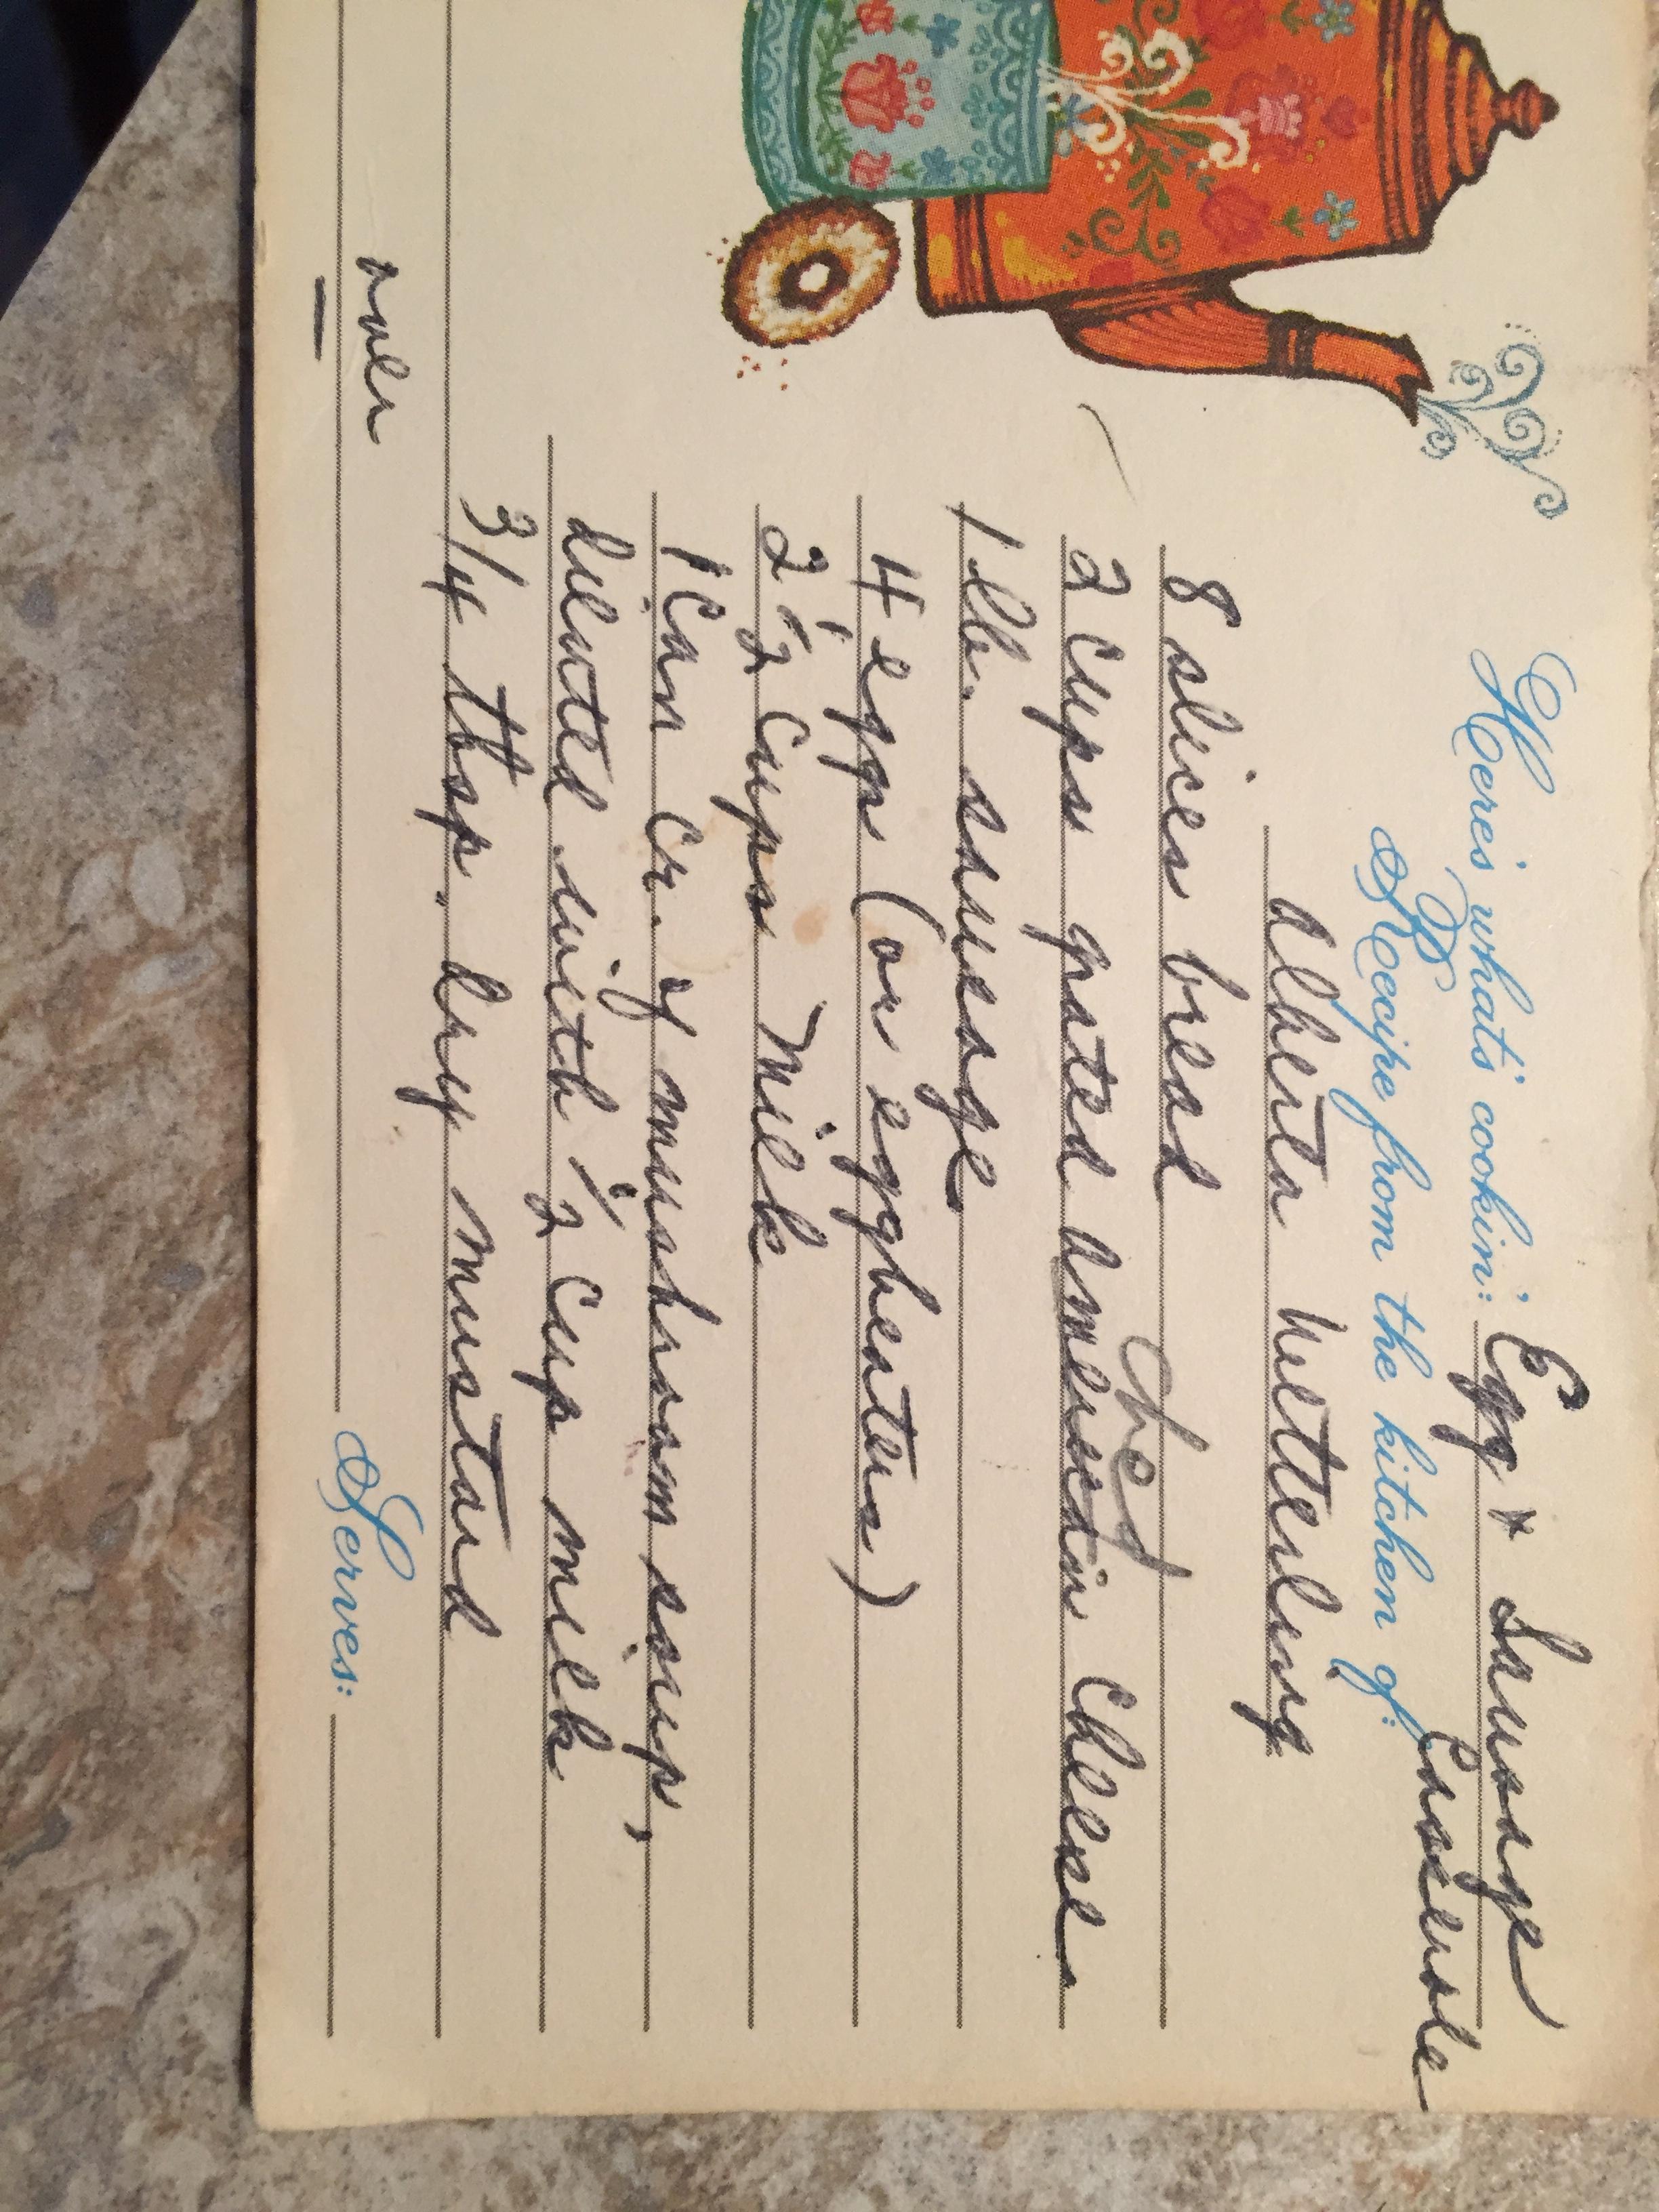 Here's what's cookin: Egg & Sausage
Casserole
Recipe from the kitchen of:
Alberta
8 slices bread
ched
2 cups grated American cheese
1 lb. sausage
4 eggs (or eggbeaters)
2 1/2 cups milk
1 can cr. of mushroom soup,
diluted with 1/2 cup milk
3/4 tbsp. dry mustard
over
Serves: